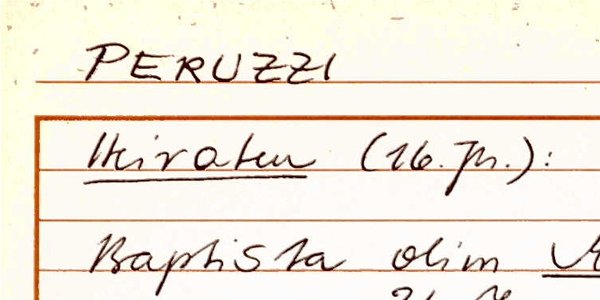 PERUZZI
Heiraten (16. Jh.):
Baptista olim